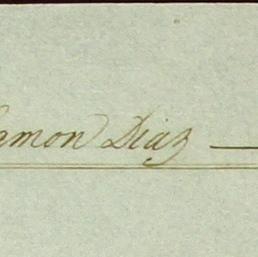 Ramon Diaz —